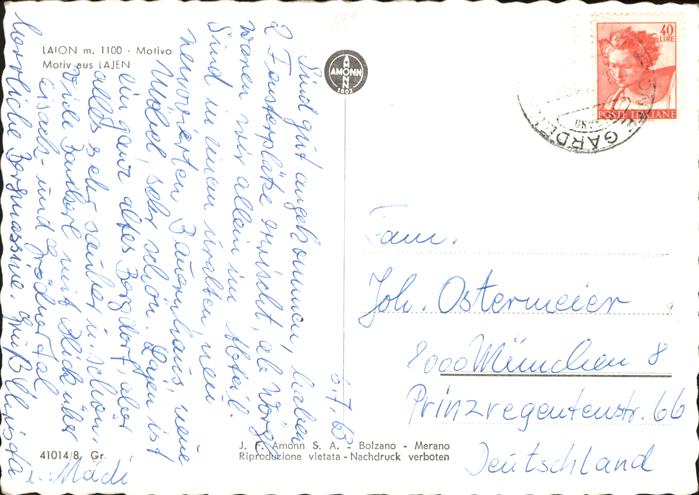 LAION m. 1100 - Motivo
Motiv aus LAJEN
AMONN
1802
40
LIRE
POSTE ITALIANE
GARDE
6.7.65
Sind gut angekommen, haben
2 Fensterplätze erwischt, ab Wörgl
waren wir allein im Abteil.
Sind in einem uralten, neu
renovierten Bauernhaus, neue
Möbel, sehr schön. Lajen ist
ein ganz altes Bergdorf, aber
alles sehr sauber u. schön.
viele mit Blick über
Eisack- und Grödner Tal
herrliche Bergmassive Grüß
u. Mädi
Fam.
Joh. Ostermeier
8000 München 8
Prinzregentenstr. 66
Deutschland
41014/8 Gr.
J. F. Amonn S. A. - Bolzano - Merano
Riproduzione vietata - Nachdruck verboten